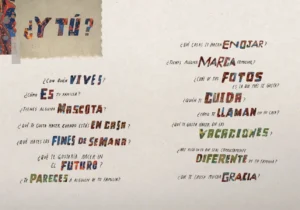 ¿Y TÚ?
¿CON QUIÉN VIVES?
¿CÓMO ES TU FAMILIA?
¿TIENES ALGUNA MASCOTA?
¿QUÉ TE GUSTA HACER CUANDO ESTÁS EN CASA?
¿QUÉ HACES LOS FINES DE SEMANA?
¿QUÉ TE GUSTARÍA HACER EN
EL FUTURO?
¿TE PARECES A ALGUIEN DE TU FAMILIA?
¿QUÉ COSAS TE HACEN ENOJAR?
¿TIENES ALGUNA MARCA
FOTOS
¿QUIÉN TE CUIDA?
¿CÓMO TE LLAMAN EN TU CASA?
¿QUÉ TE GUSTA HACER EN LAS
VACACIONES?
DIFERENTE EN TU FAMILIA?
¿QUÉ TE CAUSA MUCHA GRACIA?